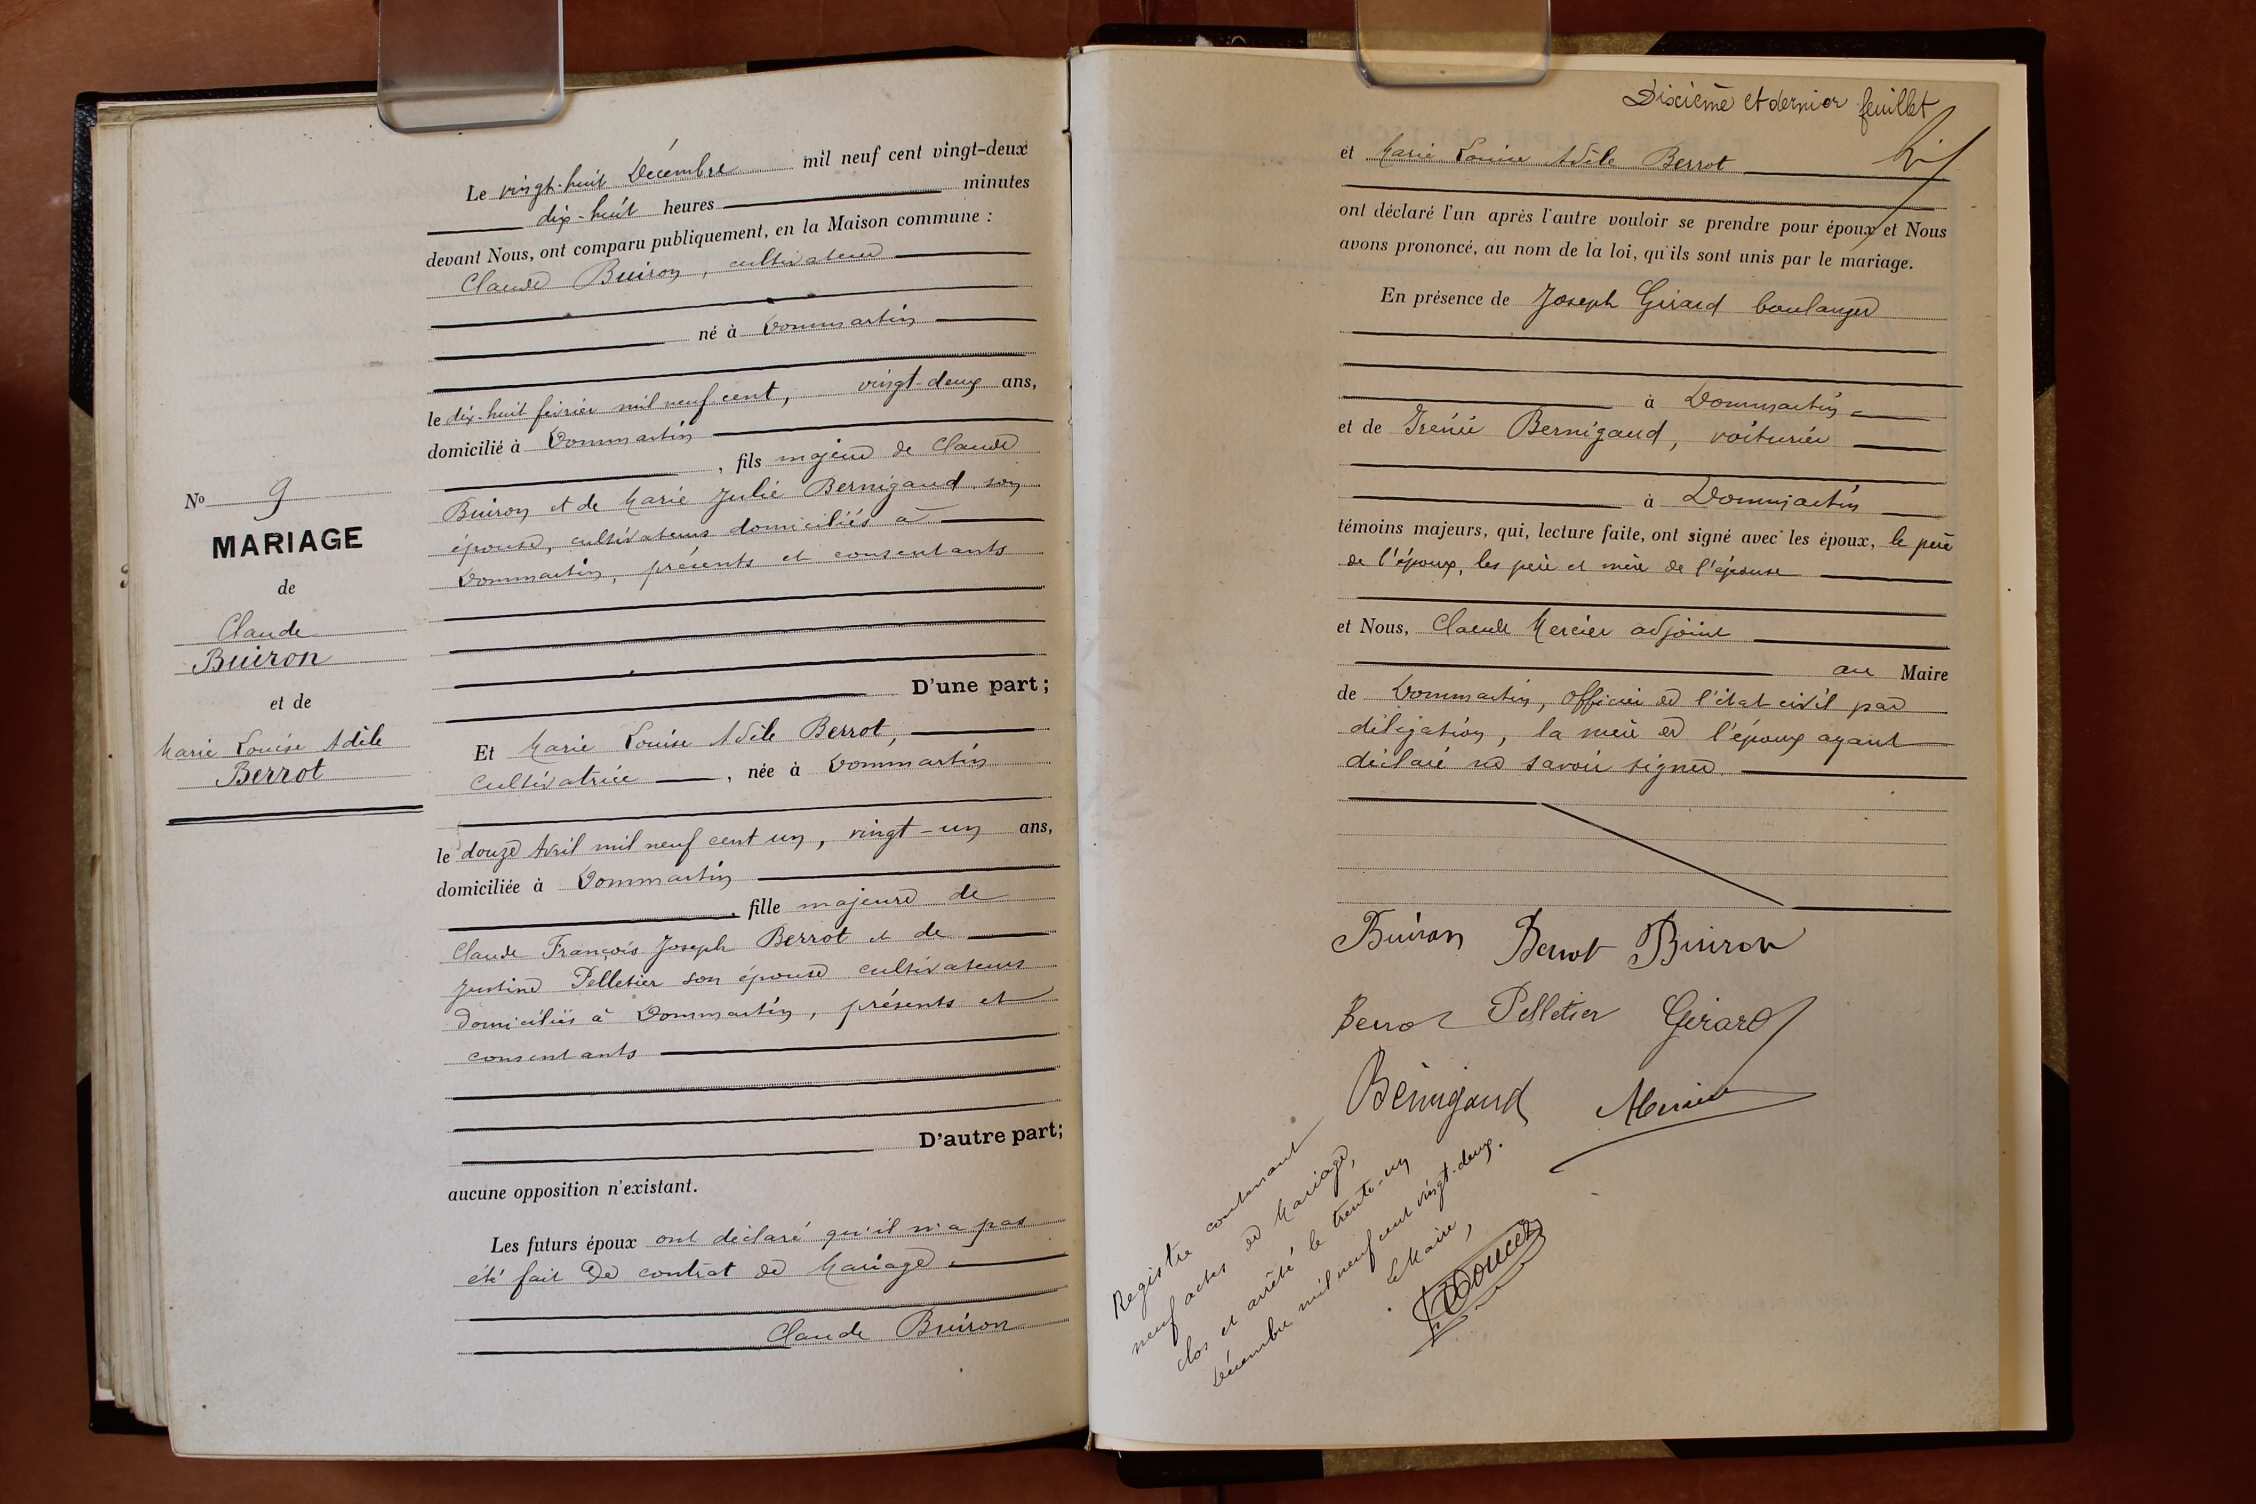 Le vingt-huit Décembre mil neuf cent vingt-deux
dix-huit heures minutes
devant Nous, ont comparu publiquement, en la Maison commune :
Claude Buiron, cultivateur
né à Dommartin
le dix-huit février mil neuf cent, vingt-deux ans,
domicilié à Dommartin
, fils majeur de Claude
Buiron et de Marie Julie Bernigaud son
épouse, cultivateurs domiciliés à
Dommartin, présents et consentants
D'une part ;
Et Marie Louise Adèle Berrot,
cultivatrice , née à Dommartin
le douze Avril mil neuf cent un, vingt-un ans,
domiciliée à Dommartin
, fille majeure de
Claude François Joseph Berrot et de
Justine Pelletier son épouse cultivateurs
domiciliés à Dommartin, présents et
consentants
D'autre part ;
aucune opposition n'existant.
Les futurs époux ont déclaré qu'il n'a pas
été fait de contrat de Mariage.
Claude Buiron
No 9
MARIAGE
de
Claude
Buiron
et de
Marie Louise Adèle
Berrot
Dixième et dernier feuillet
et Marie Louise Adèle Berrot
ont déclaré l'un après l'autre vouloir se prendre pour époux et Nous
avons prononcé, au nom de la loi, qu'ils sont unis par le mariage.
En présence de Joseph Girard boulanger
à Dommartin
et de Irénée Bernigaud, voiturier
à Dommartin
témoins majeurs, qui, lecture faite, ont signé avec les époux, le père
de l'époux, les père et mère de l'épouse
et Nous, Claude Mercier adjoint
au Maire
de Dommartin, officier de l'état civil par
délégation, la mère de l'époux ayant
déclaré ne savoir signer
Buiron Berrot Buiron
Berrot Pelletier Girard
Bernigaud Mercier
Registre contenant
neuf actes de Mariage,
clos et arrêté le trente-un
Décembre mil neuf cent vingt-deux.
Le Maire,